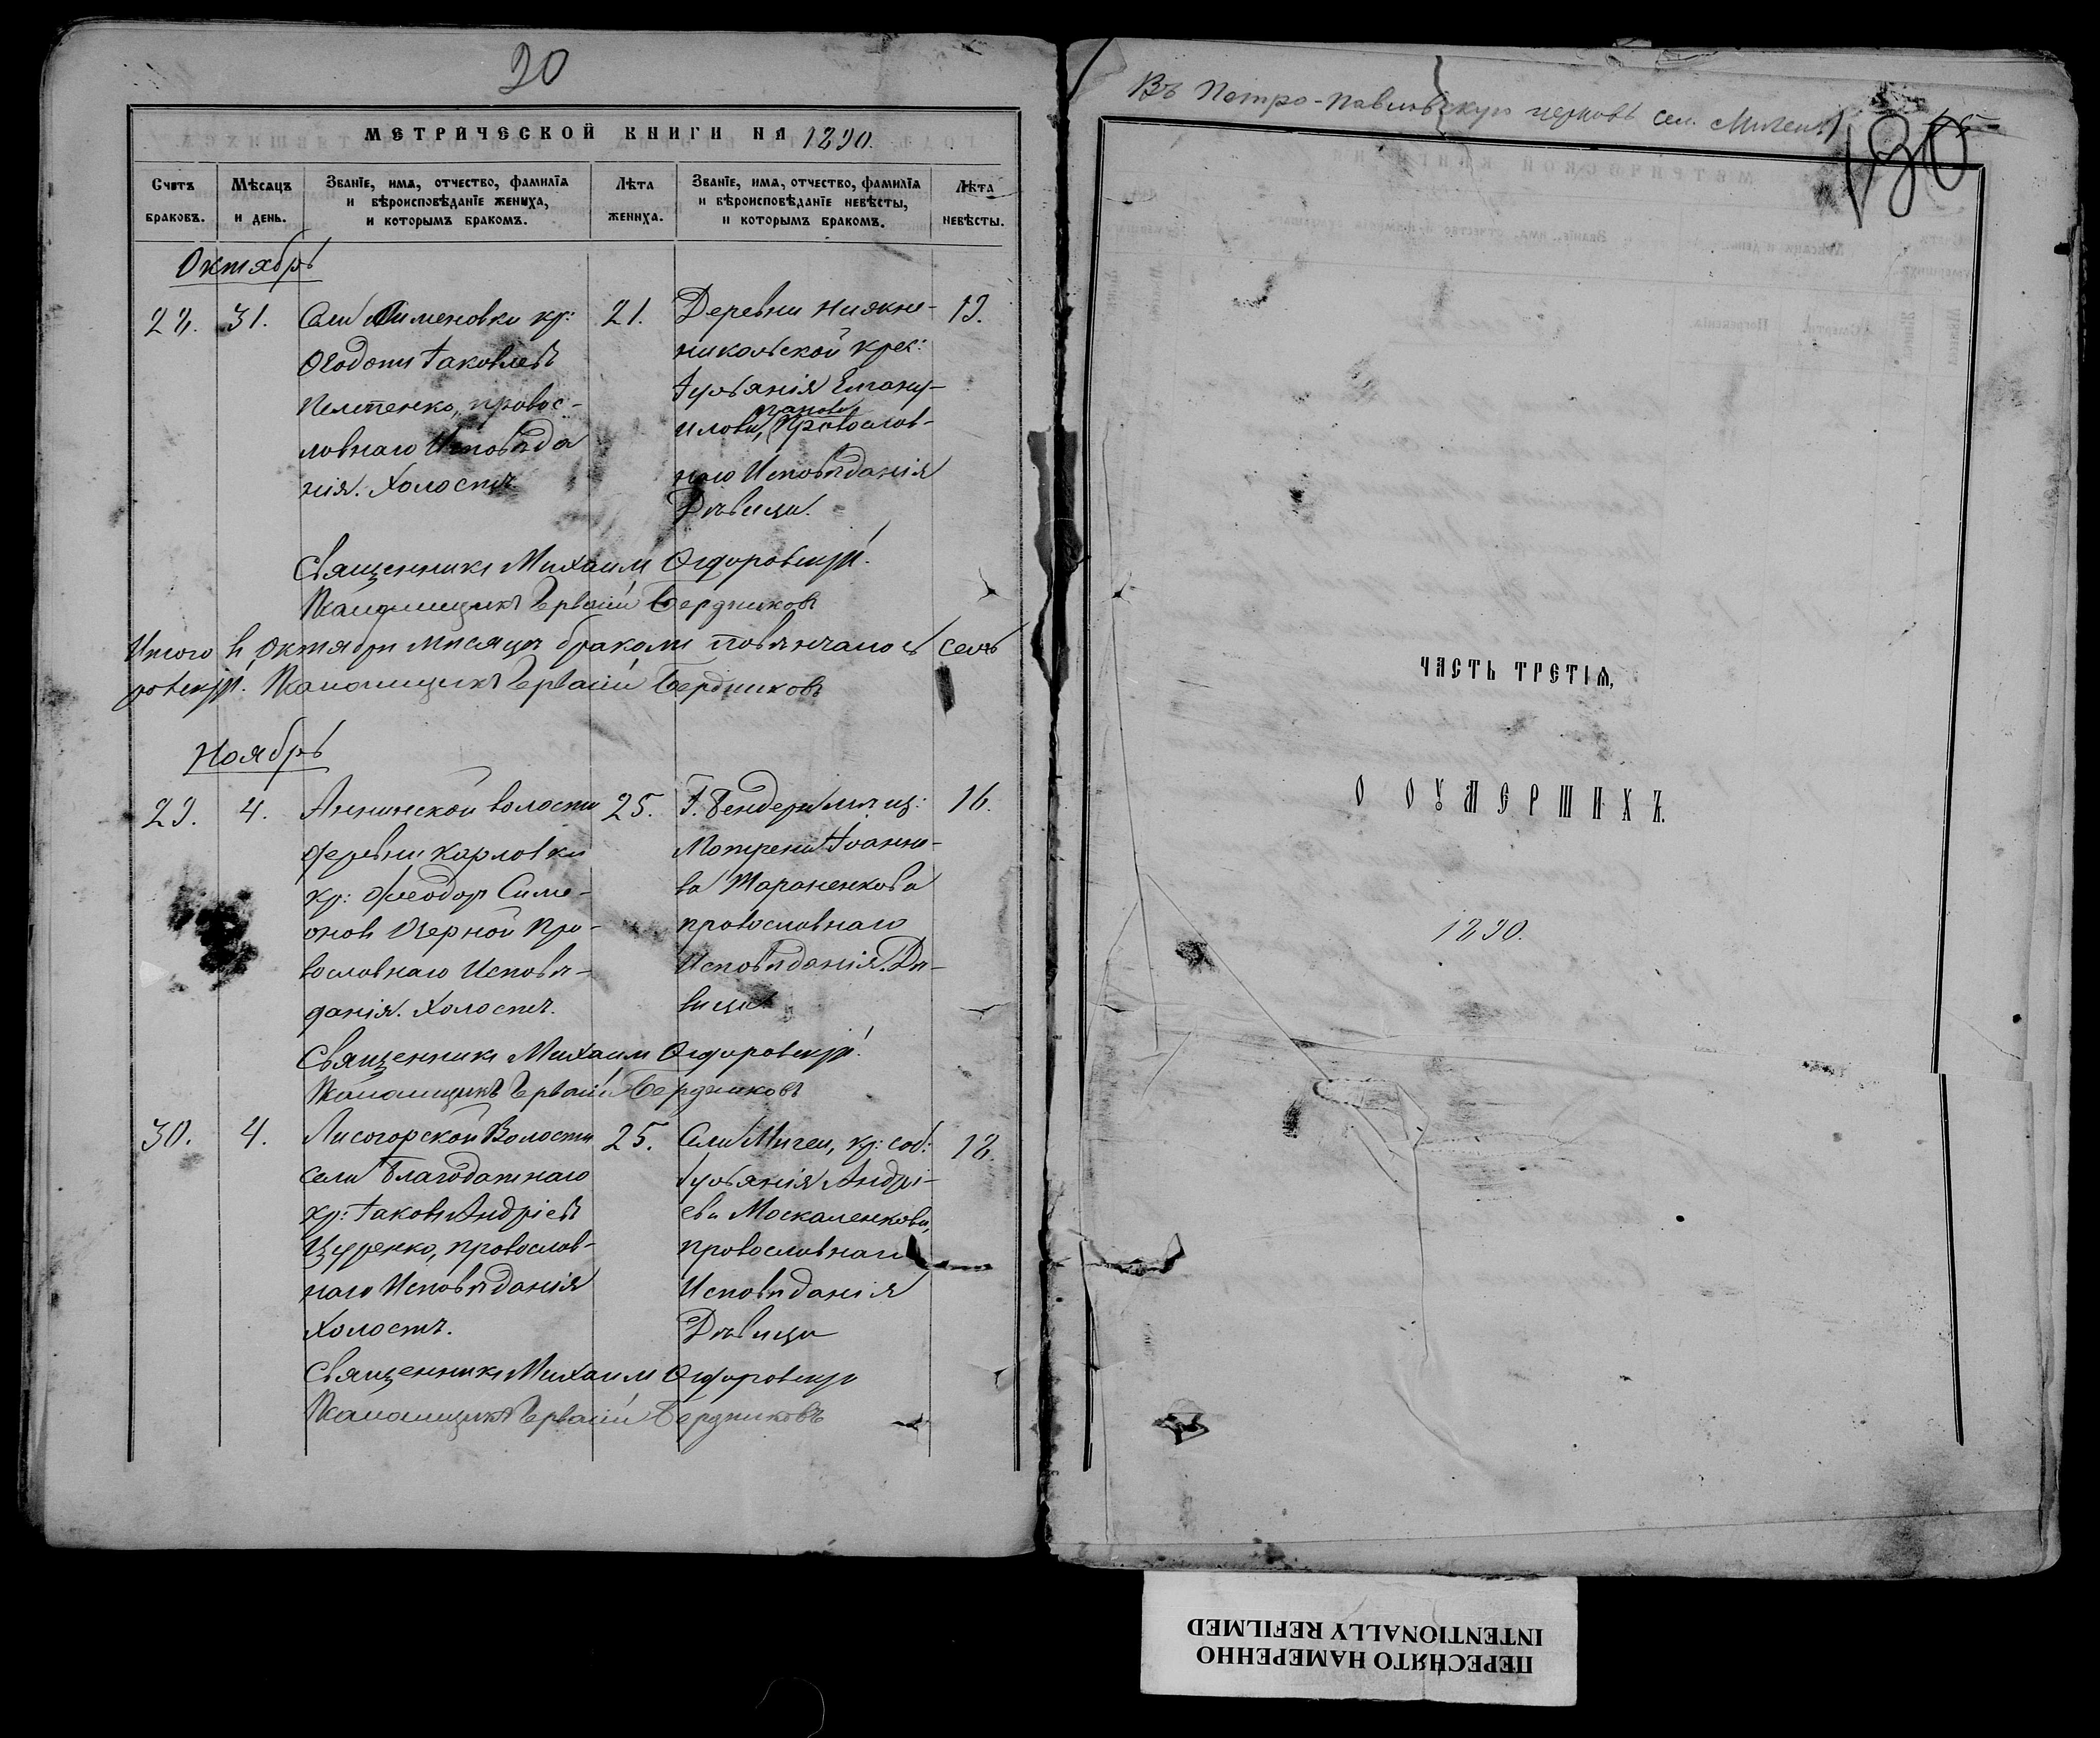 20
МЕТРИЧЕСКОЙ КНИГИ НА 1890.
Счетъ браковъ.
Мѣсяцъ и день.
Званїе, имя, отчество, фамилїя и вѣроисповѣданїе жениха, и которымъ бракомъ.
Лѣта жениха.
Званїе, имя, отчество, фамилїя и вѣроисповѣданїе невѣсты, и которымъ бракомъ.
Лѣта невѣсты.
Октябрь
31.
Села кр:
Іаковлевъ
правос-
лавнаго Исповѣда
нія. Холостъ.
21.
Деревни Нижне-
никольской крес:
Іуліанія Еману-
илова, Православ-
наго Исповѣданія
Дѣвица.
19.
Священникъ Михаилъ
Псаломщикъ Гервасій Бердниковъ
Итого в Октябрѣ мѣсяцѣ браками повѣнчано
Псаломщикъ Гервасій Бердниковъ
Ноябрь
29.
4.
Аннинской волости
деревни Карловки
кр: Феодоръ Симе-
оновъ Пра-
вославнаго Исповѣ-
данія. Холостъ.
25.
Г. Бендеръ мѣщ:
Матрена Іоанно-
ва Тараненкова
православнаго
Исповѣданія. Дѣ-
вица
16.
Священникъ Михаилъ
Псаломщикъ Гервасій Бердниковъ
30.
4.
Лисогорской Волости
села Благодатнаго
кр: Іаковъ Андріевъ
Цуренко, православ-
наго Исповѣданія
Холостъ.
25.
Села Мигеи, кр: соб:
Іуліанія Андрі-
ева Москаленкова,
православнаго
Исповѣданія
Дѣвица
18.
Священникъ Михаилъ
Псаломщикъ Гервасій Бердниковъ
Въ Петро-Павловскую церковь сел. Мигеи
180
ЧАСТЬ ТРЕТІѦ,
О ОУМЕРШИХЪ.
1890.
ПЕРЕСНЯТО НАМЕРЕННО
INTENTIONALLY REFILMED